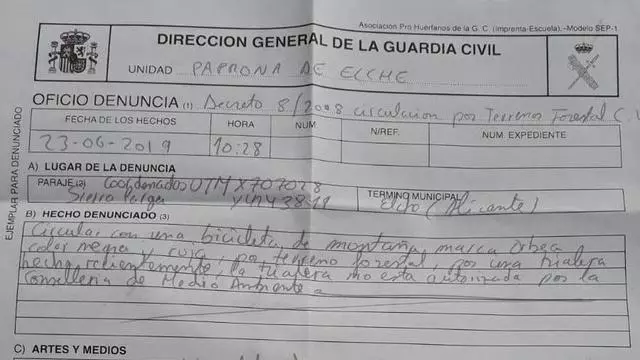 Asociación Pro Huérfanos de la G. C. (Imprenta-Escuela).-Modelo SEP-1
DIRECCION GENERAL DE LA GUARDIA CIVIL
UNIDAD PAPRONA DE ELCHE
EJEMPLAR PARA DENUNCIADO
OFICIO DENUNCIA (1) Decreto 8/2008 circulacion por Terrenos Forestal C.V
FECHA DE LOS HECHOS HORA NUM. N/REF. NUM. EXPEDIENTE
23-06-2019 10:28
A) LUGAR DE LA DENUNCIA
PARAJE (2) Coordenadas UTM X707028
Sierra Larga
TERMINO MUNICIPAL
Elche (Alicante)
B) HECHO DENUNCIADO (3)
Circular con una bicicleta de montaña marca Orbea
color negra y roja, por terreno forestal, por una
hecha recientemente, la no esta autorizada por la
Conselleria de Medio Ambiente
C) ARTES Y MEDIOS